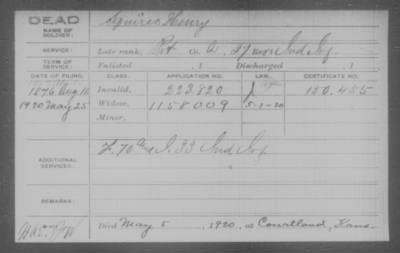 DEAD
NAME OF SOLDIER:
Squires Henry
SERVICE:
Late rank, Pvt Co. A, 27 Ind Inf.
TERM OF SERVICE:
Enlisted , 1 Discharged , 1
DATE OF FILING. CLASS. APPLICATION NO. LAW. CERTIFICATE NO.
1876 Aug 16 Invalid, 222820 150.455
1920 May 25 Widow, 1158009 5-1-20
Minor,
ADDITIONAL SERVICES:
70 Ind & 33 Ind Inf
REMARKS:
Died May 5, 1920, at Courtland, Kans